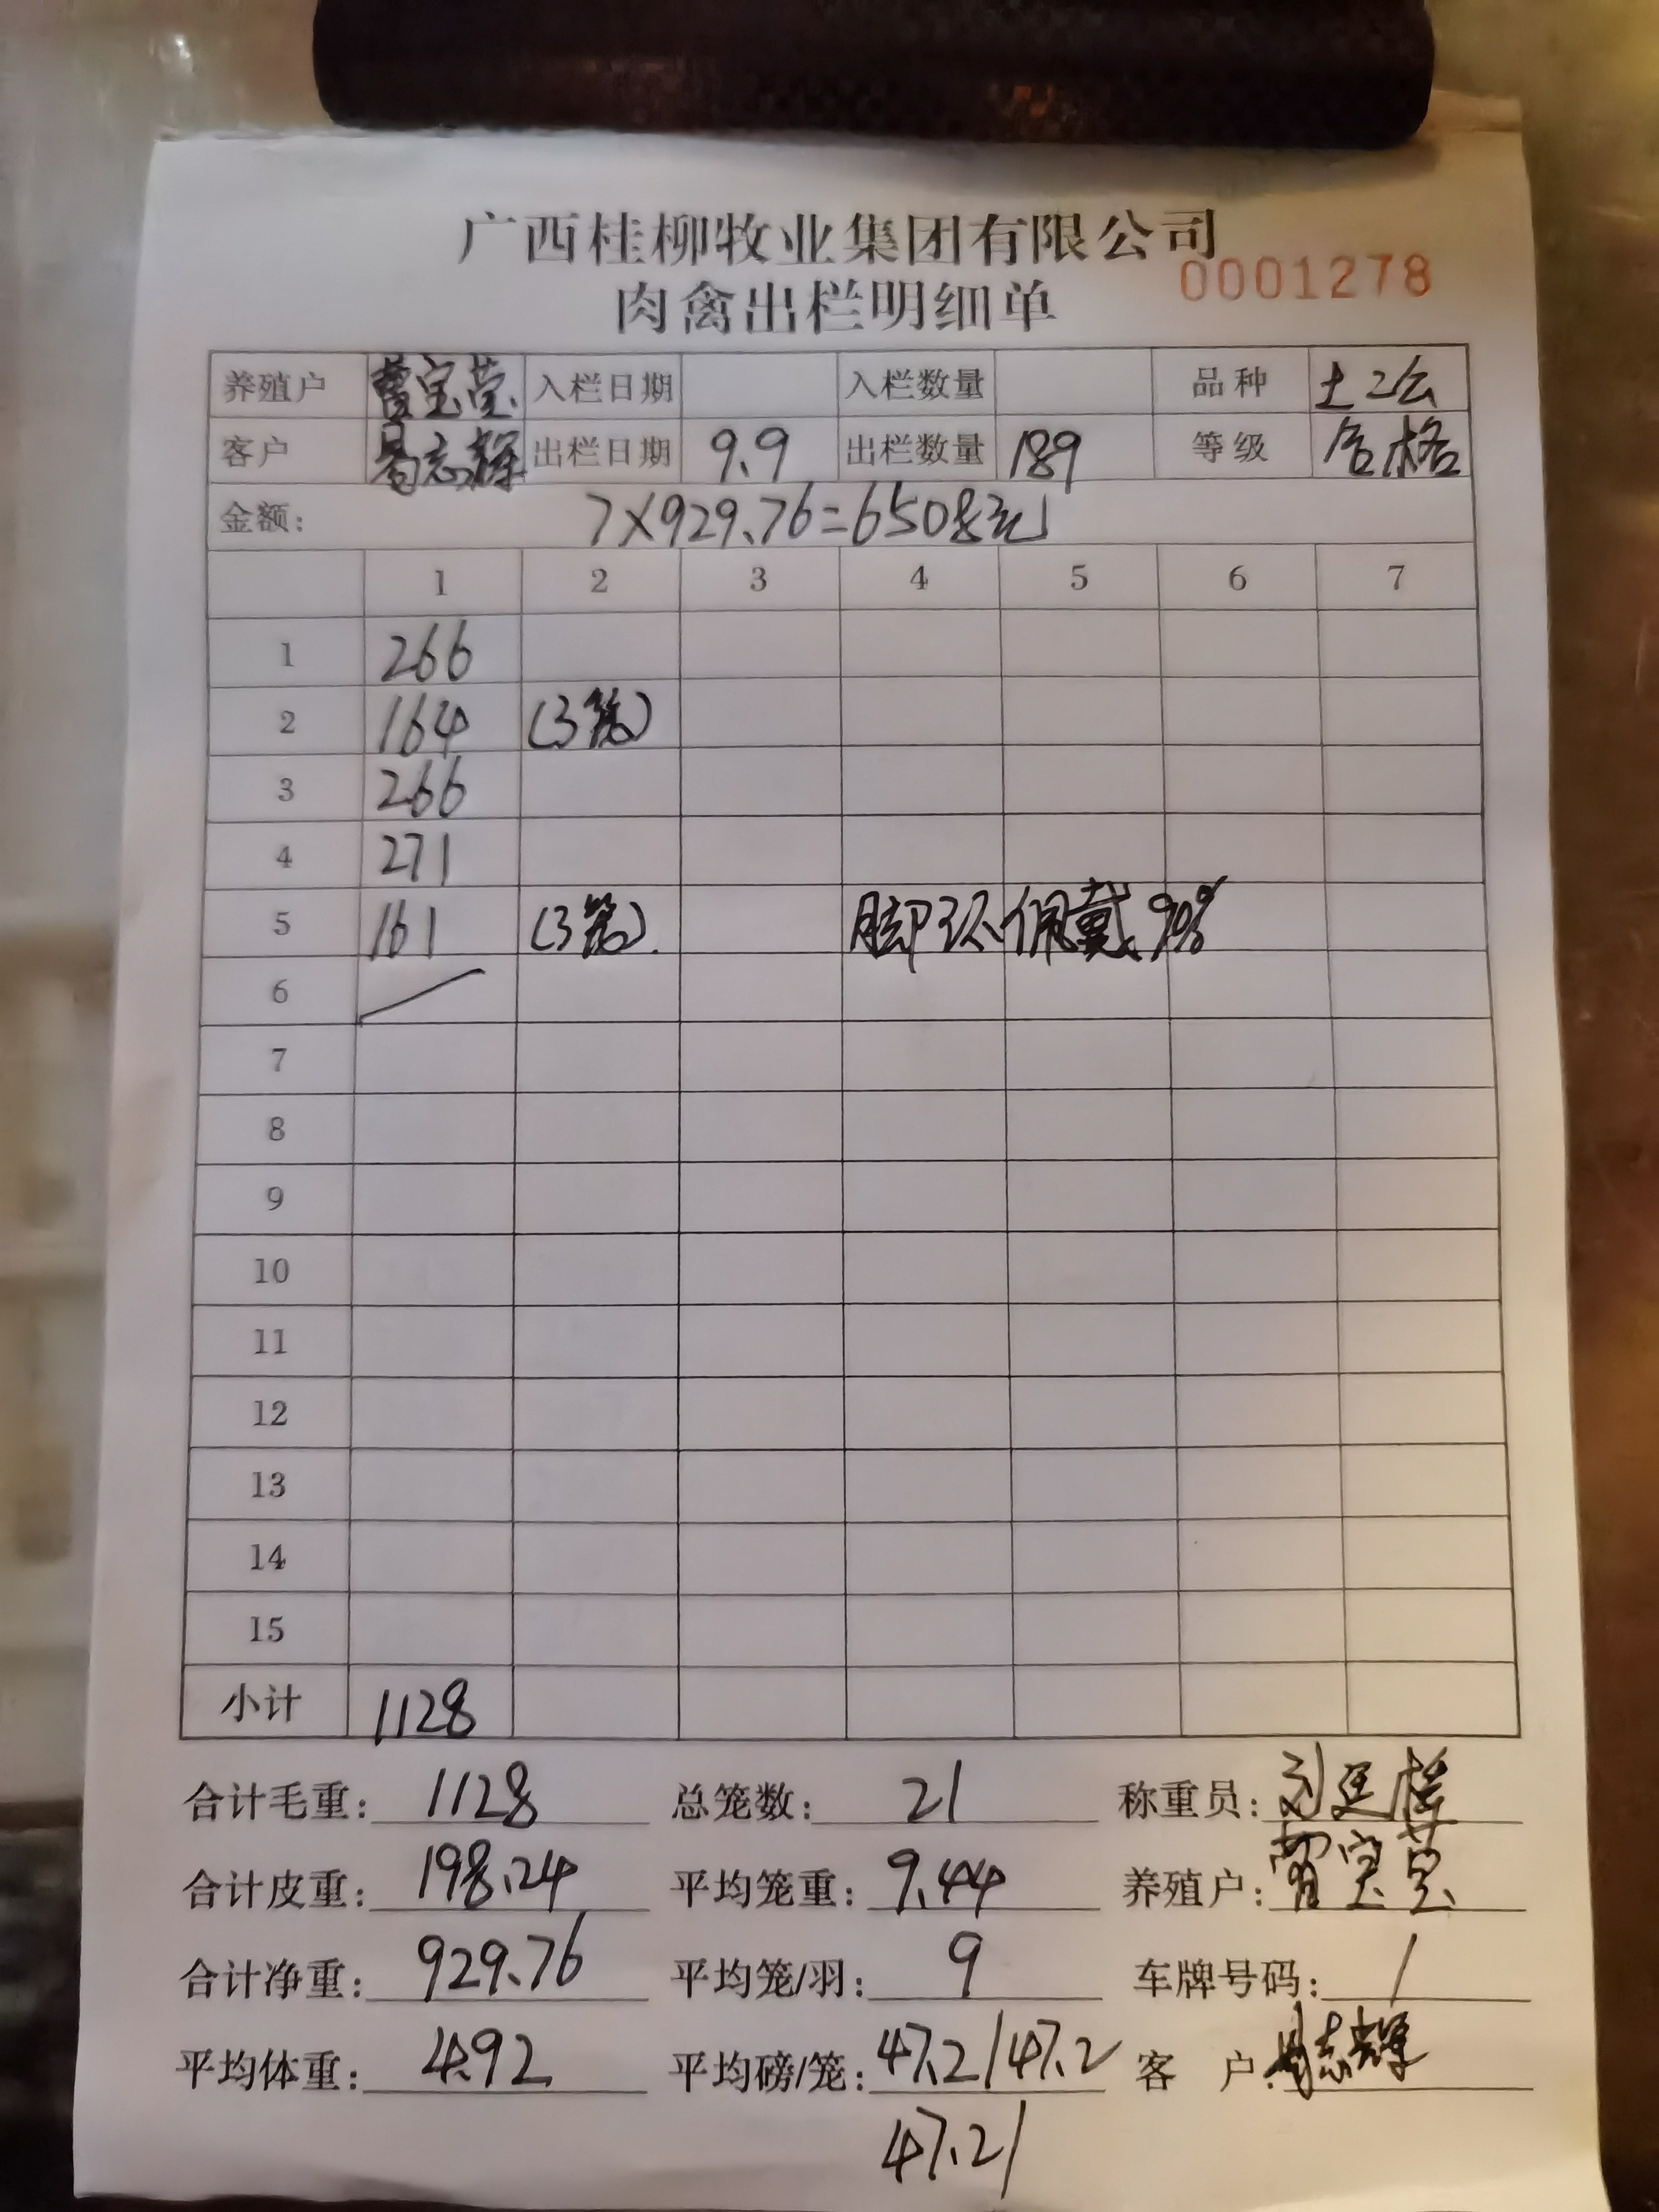 广西桂柳牧业集团有限公司
0001278
肉禽出栏明细单
养殖户 曹宝莹 入栏日期 入栏数量 品种 土2公
客户 易志辉 出栏日期 9.9 出栏数量 189 等级 合格
金额: 7×929.76=6508元
1 2 3 4 5 6 7
1 266
2 164 (3笼)
3 266
4 271
5 161 (3笼). 脚环佩戴90%
6
7
8
9
10
11
12
13
14
15
小计 1128
合计毛重: 1128 总笼数: 21 称重员: 刘廷
合计皮重: 198.24 平均笼重: 9.44 养殖户: 曹宝莹
合计净重: 929.76 平均笼/羽: 9 车牌号码: /
平均体重: 4.92 平均磅/笼: 47.2/47.2 客 户: 易志辉
47.2/